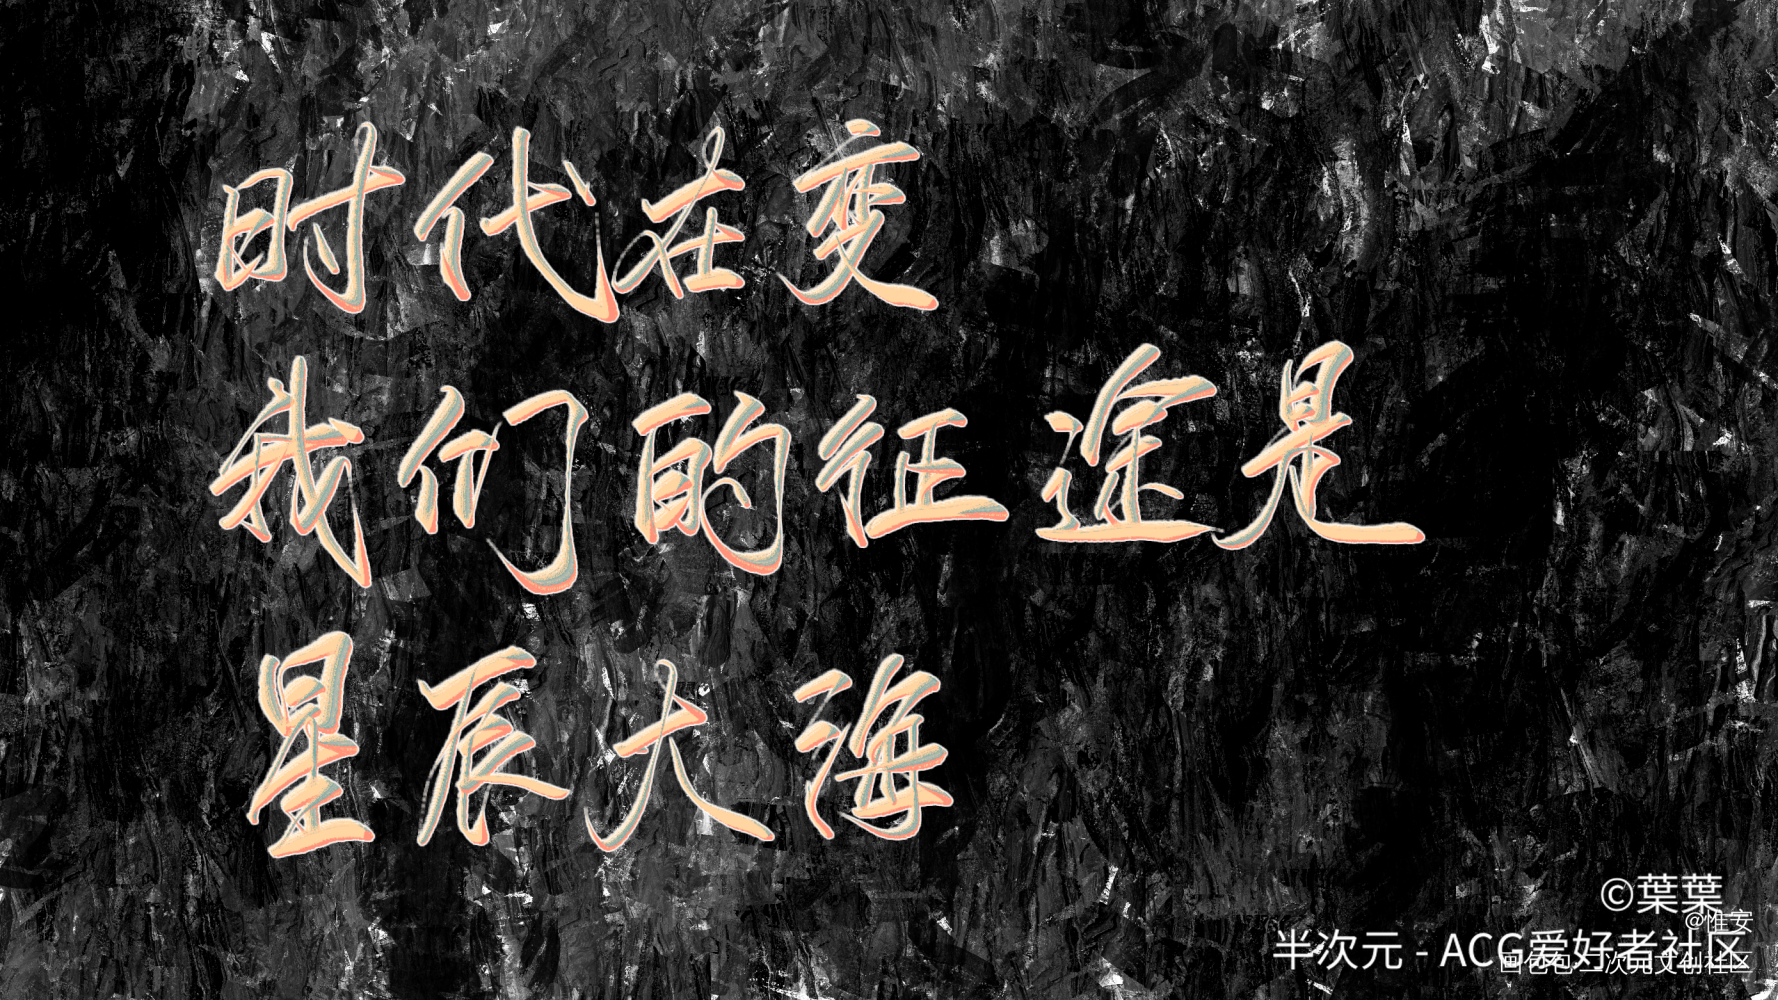 时代在变
我们的征途是
星辰大海
©葉葉
@惟安
半次元 - ACG爱好者社区
二次元文创社区